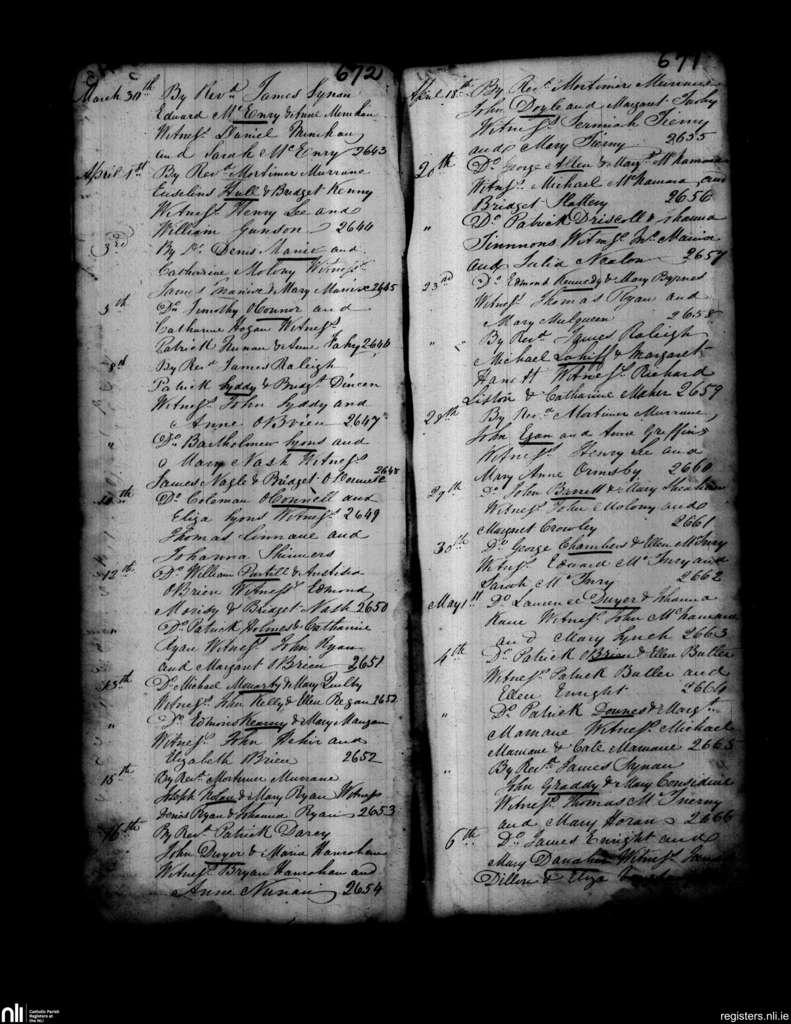 672
March 30th By Revd James Synan
Edward McEnry & Anne Menihan
Witness Daniel Minihan
and Sarah McEnry 2643
April 1st By Revd Mortimer Murrane
Hull & Bridget Kenny
Witnesss Henry Lee and
William Gunson 2644
3rd By Do Denis Manix and
Catharine Molony Witnesss
James Manix & Mary Manix 2645
5th Do Timothy OConnor and
Catharine Hogan Witnesss
Patrick Nunan & Anne Fahy 2646
8th By Revd James Raleigh
Patrick Lyddy & Bridgt Dineen
Witnesss John Lyddy and
Anne OBrien 2647
" Do Bartholmew Lyons and
Mary Nash Witnesss
James Nagle & Bridget OConnell 2648
10th Do Coleman OConnell and
Eliza Lyons Witnesss 2649
Thomas Linnane and
Johanna Skinners
12th Do William &
OBrien Witnesss Edmond
& Bridget Nash 2650
Do Patrick Holmes & Catharine
Ryan Witnesss John Ryan
and Margaret OBrien 2651
13th Do Michael Moriarty & Mary Quilty
Witnesss John Kelly & Ellen Regan 2652
" Do Edmond Kearny & Mary Mangan
Witnesss John Hehir and
Elizabeth OBrien 2652
15th By Revd Mortimer Murrane
Joseph Nolan & Mary Ryan Witness
Denis Ryan & Johanna Ryan 2653
16th By Revd Patrick Darcy
John Dwyer & Maria Hanrahan
Witnesss Bryan Hanrahan and
Anne Nunan 2654
671
April 18th By Revd Mortimer Murrane
John Doyle and Margaret
Witnesss Jermiah Tierny
and Mary Tierny 2655
20th Do George Allen & Margt McNamara
Witnesss Michael McNamara and
Bridget Slattery 2656
" Do Patrick Driscoll & Johanna
Timmons Witnesss
and Julia Nealon 2657
23rd Do Edmond Kennedy & Mary Byrnes
Witnesss Thomas Ryan and
Mary Mulqueen 2658
" By Revd James Raleigh
Michael Lahiff & Margaret
Witnesss Richard
Liston & Catharine Maher 2659
28th By Revd Mortimer Murrane
John Egan and Anne Griffin
Witnesss Henry Lee and
Mary Anne Ormsby 2660
29th Do John Barrett & Mary Sheahan
Witnesss John Molony and
Margret Crowley 2661
30th Do George Chambers & Ellen McInry
Witnesss Edward McInry and
Sarah McInry 2662
May 1st Do Laurence Dwyer & Johanna
Kane Witnesss John McNamara
and Mary Lynch 2663
4th Do Patrick OBrien & Ellen Butler
Witnesss Patrick Butler and
Ellen Enright 2664
" Do Patrick Downes & Margt
Marnane Witnesss Michael
Marnane & Cate Marnane 2665
" By Revd James Synan
John Graddy & Mary Considine
Witnesss Thomas McInerny
and Mary Horan 2666
6th Do James Enright and
Mary Donahue Witnesss James
Dillon & Eliza
nli
Catholic Parish
Registers at
the NLI
registers.nli.ie